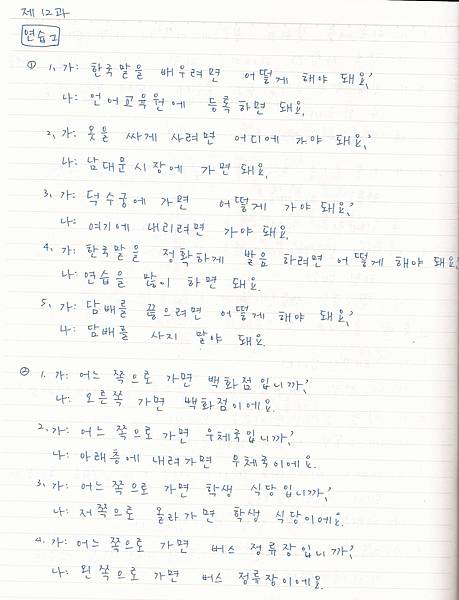 제 12 과
연습 2
① 1. 가: 한국 말을 배우려면 어떻게 해야 돼요?
나: 언어교육원에 등록하면 돼요.
2. 가: 옷을 싸게 사려면 어디에 가야 돼요?
나: 남대문 시장에 가면 돼요.
3. 가: 덕수궁에 가면 어떻게 가야 돼요?
나: 여기에 내리려면 가야 돼요.
4. 가: 한국말을 정확하게 발음 하려면 어떻게 해야 돼요
나: 연습을 많이 하면 돼요.
5. 가: 담배를 끊으려면 어떻게 해야 돼요?
나: 담배를 사지 말야 돼요.
② 1. 가: 어느 쪽으로 가면 백화점입니까?
나: 오른쪽 가면 백화점이에요.
2. 가: 어느 쪽으로 가면 우체국입니까?
나: 아래층에 내려가면 우체국이에요.
3. 가: 어느 쪽으로 가면 학생 식당입니까?
나: 저쪽으로 올라가면 학생 식당이에요.
4. 가: 어느 쪽으로 가면 버스 정류장입니까?
나: 왼쪽으로 가면 버스 정류장이에요.